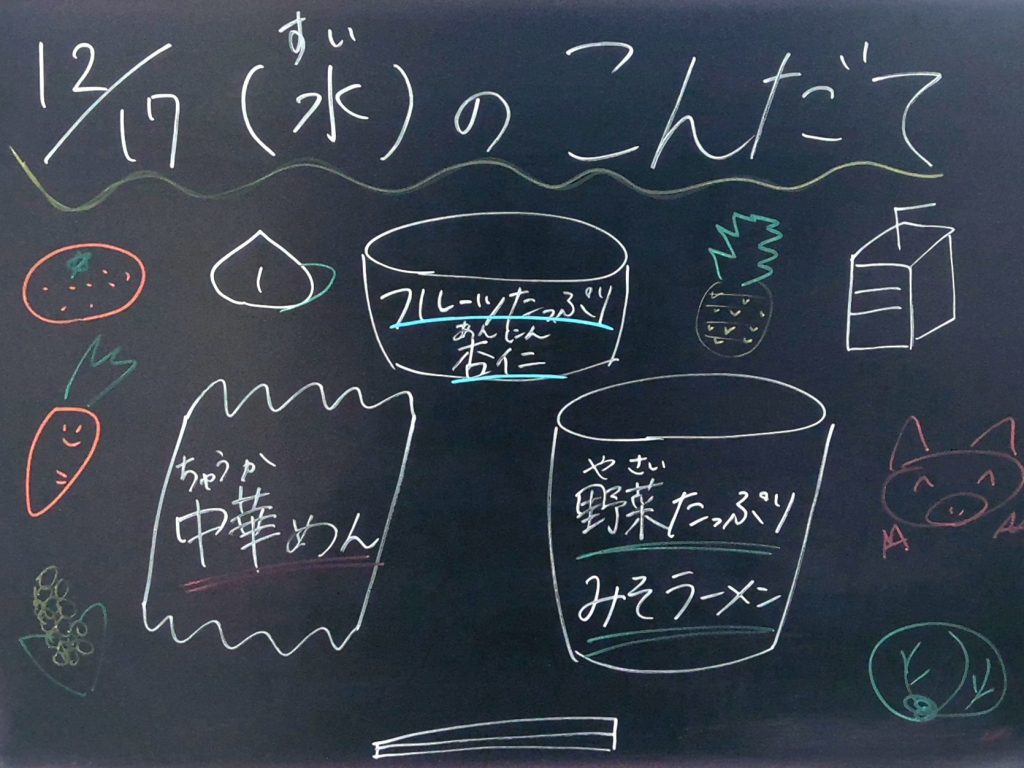 すい
12/17(水)のこんだて
フルーツたっぷり
あんにん
杏仁
ちゅうか
中華めん
やさい
野菜たっぷり
みそラーメン